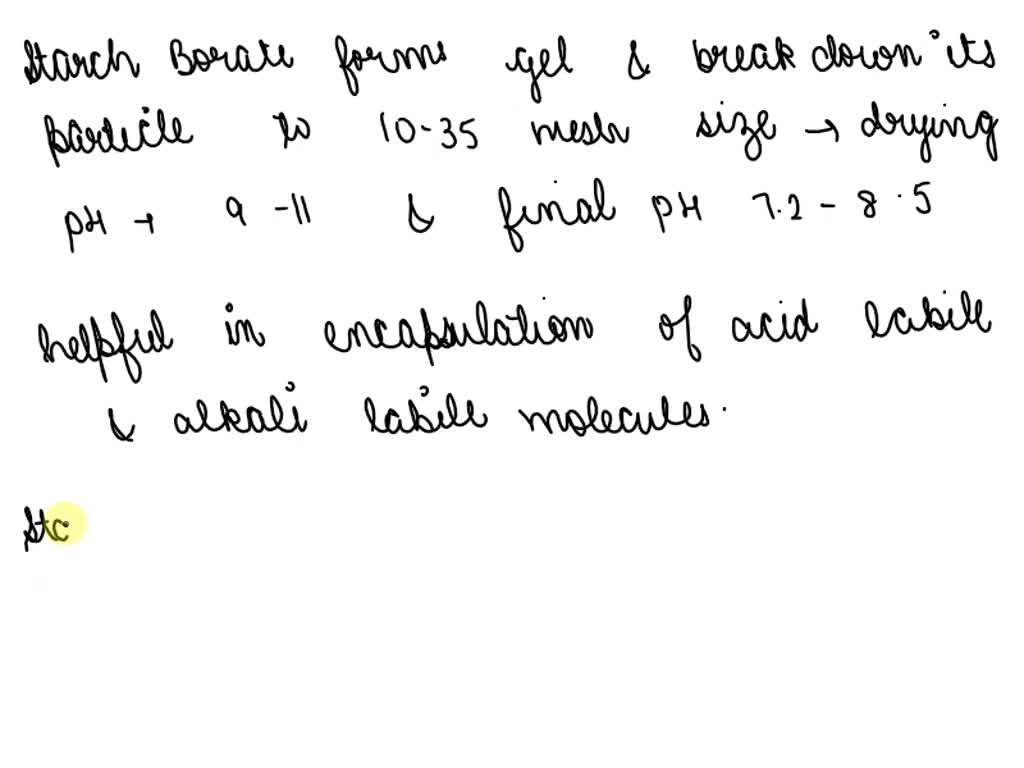 Starch Borate forms gel & break down its
particle to 10-35 mesh size → drying
pH → 9-11 & final pH 7.2 - 8.5
helpful in encapsulation of acid labile
& alkali labile molecules.
Sta